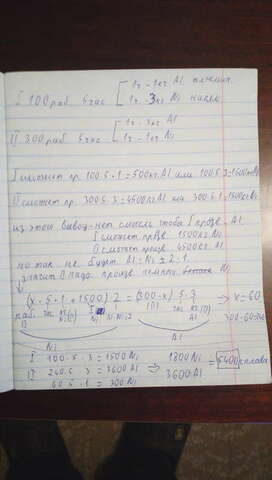 I 100 раб 5 час [ 1ч - 1кг Al алюмин.
1ч - 3кг Ni никель
II 300 раб 5 час [ 1ч - 3кг Al
1ч - 1кг Ni
I сможет пр. 100·5·1=500кг Al или 100·5·3=1500кг Ni
II сможет пр 300·5·3=4500кг Al или 300·5·1=1500кг Ni
из этого вывод - нет смысла чтобы I произв. Al
I сможет произв. 1500кг Ni
II сможет произв. 4500кг Al
но так не будет Al : Ni = 2:1
значит II надо произв. немного Ni
(x·5·1+1500)2 = (300-x)·5·3 ⇒ x=60
раб час кг Ni(II) I Ni Ni·2 (II) час кг(II) Al 300-60=240
Ni Al
I 100·5·3=1500Ni 1800Ni
II 240·5·3=3600Al ⇒ 3600Al = 5400 сплава
60·5·1=300Ni